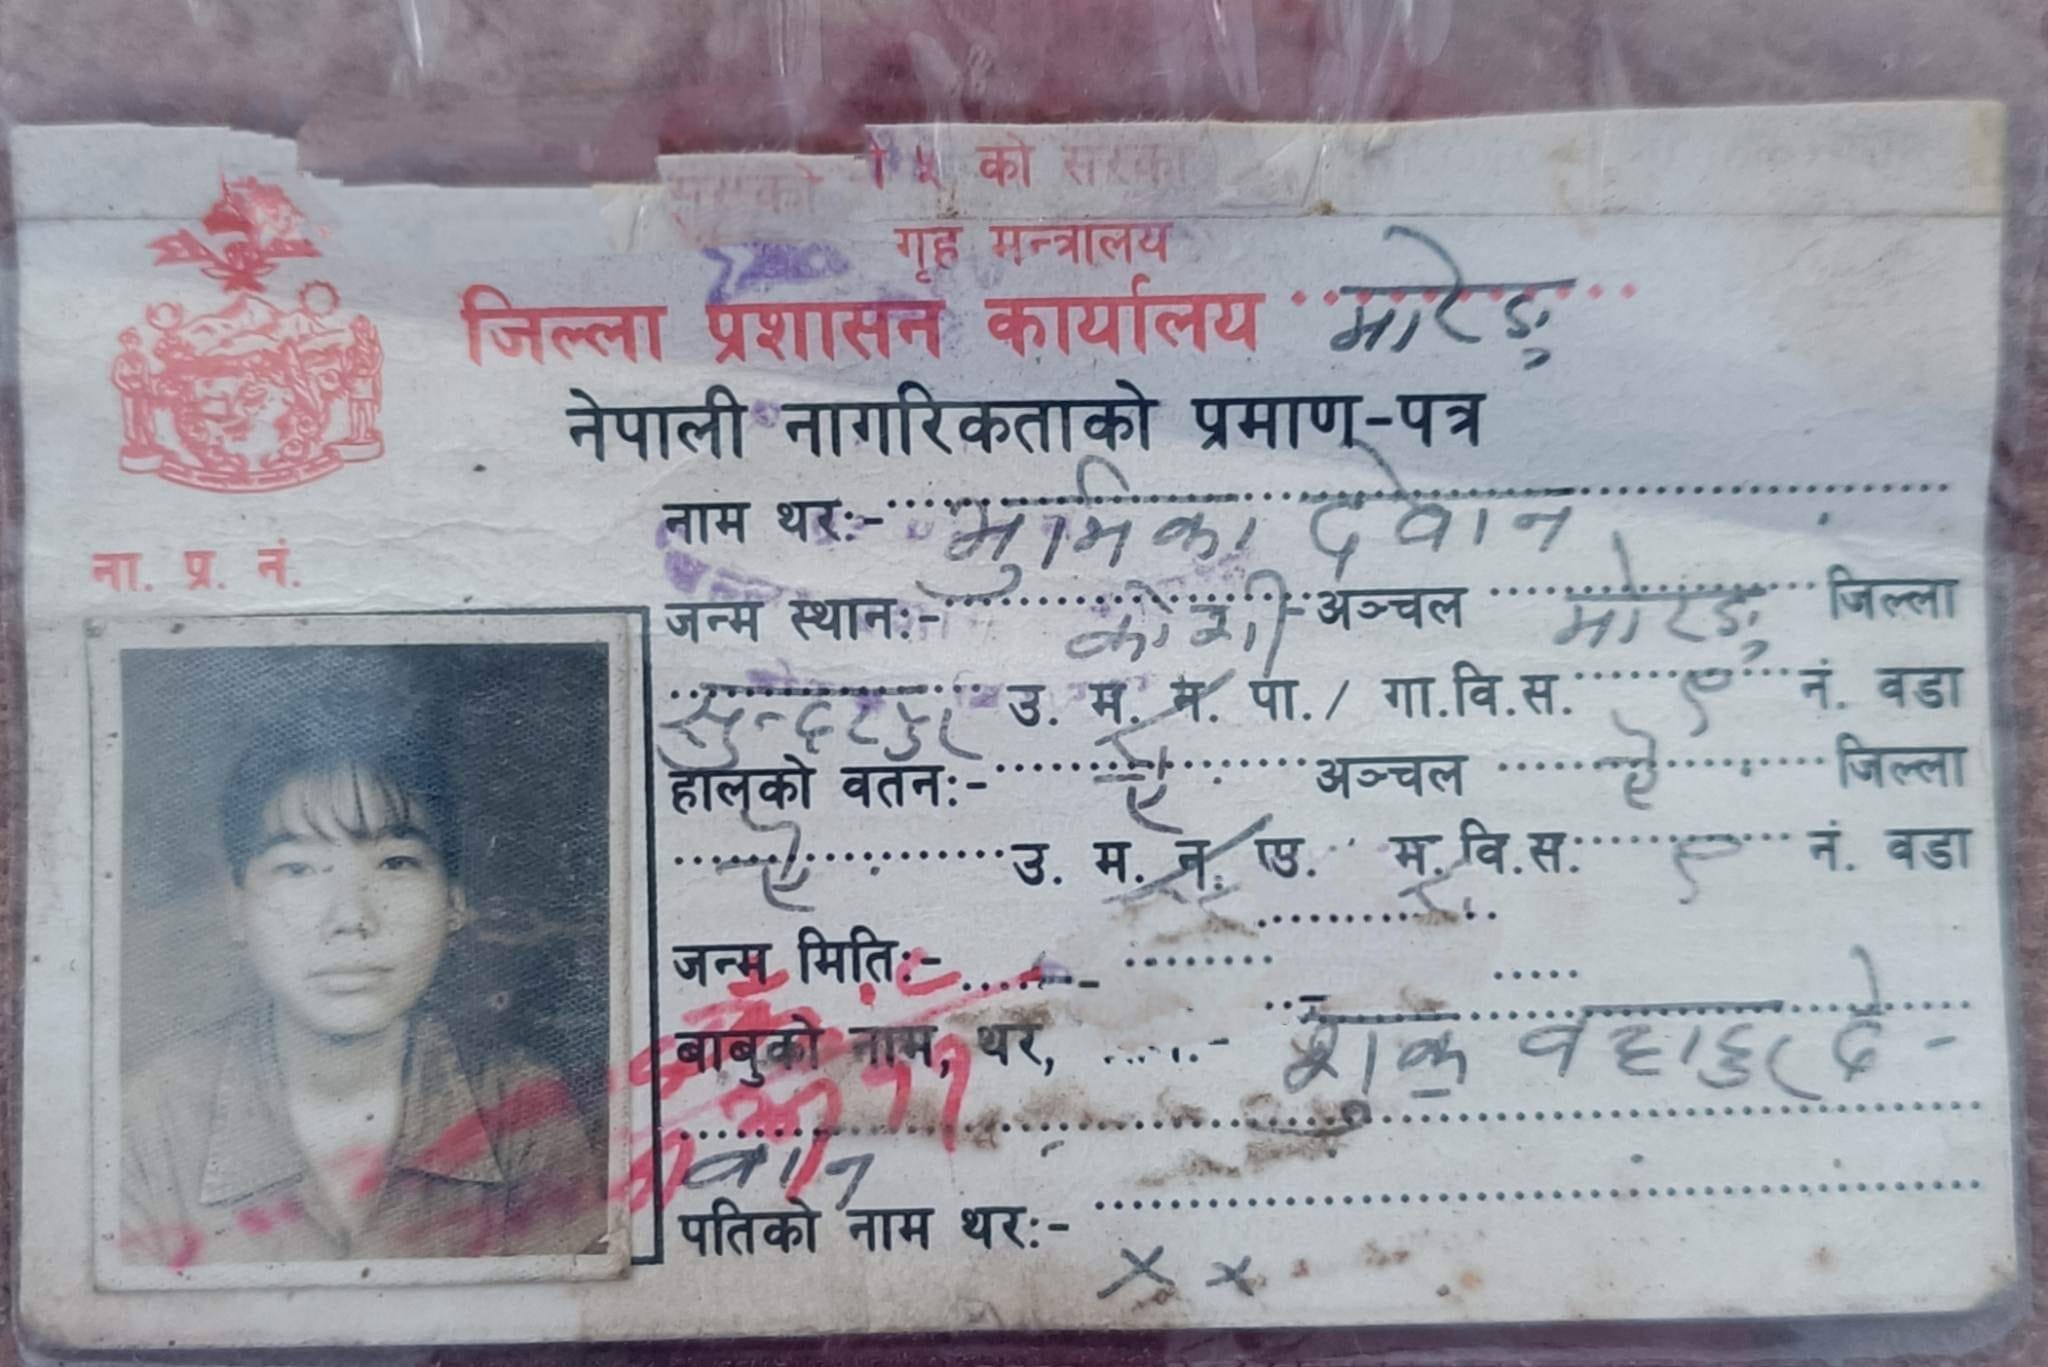 को सरका
गृह मन्त्रालय
जिल्ला प्रशासन कार्यालय मोरङ
नेपाली नागरिकताको प्रमाण-पत्र
नाम थर:- भुमिका देवान
ना. प्र. नं.
जन्म स्थान:- कोशी अञ्चल मोरङ जिल्ला
सुन्दरपुर उ. म. न. पा. / गा.वि.स. ९ नं. वडा
हालको वतन:- ऐ अञ्चल ऐ जिल्ला
ऐ उ. म. न. वि.स. ९ नं. वडा
जन्म मिति:-
बाबुको नाम, थर, शुक्र वहादुर दे-
वान
पतिको नाम थर:-
x x